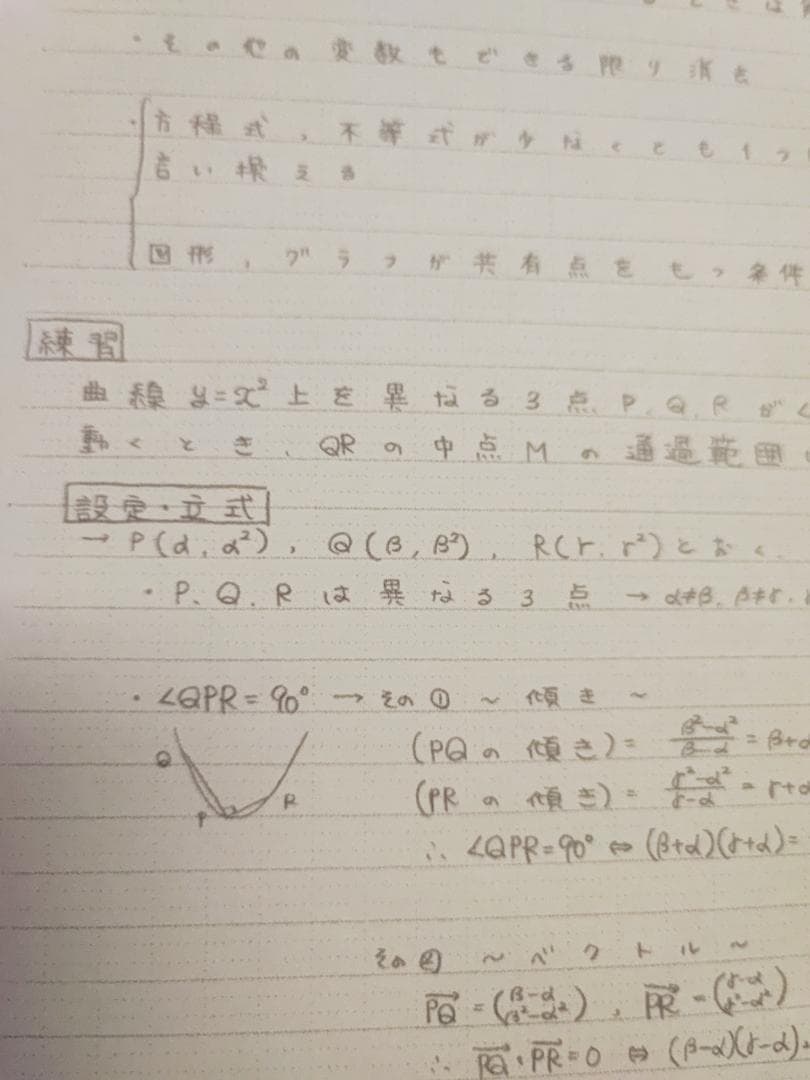 ときは
・その他の変数もできる限り消去
・方程式、不等式が少なくとも1つ
言い換える
図形、グラフが共有点をもつ条件
練習
曲線 y=x² 上を異なる3点 P、Q、R が
動くとき、QRの中点Mの通過範囲
設定・立式
→ P(α, α²), Q(β, β²), R(γ, γ²)とおく、
・P、Q、Rは異なる3点 → α≠β, β≠γ,
・∠QPR=90° → その① ~ 傾き ~
(PQの傾き) = (β²-α²)/(β-α) = β+α
Q
(PRの傾き) = (γ²-α²)/(γ-α) = γ+α
P R
∴ ∠QPR=90° ⇔ (β+α)(γ+α)=
その② ~ ベクトル ~
PQ→ = (β-α β²-α²), PR→ = (γ-α γ²-α²)
∴ PQ→・PR→=0 ⇔ (β-α)(γ-α)+